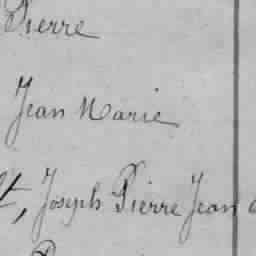 Pierre
Jean Marie
Joseph Pierre Jean